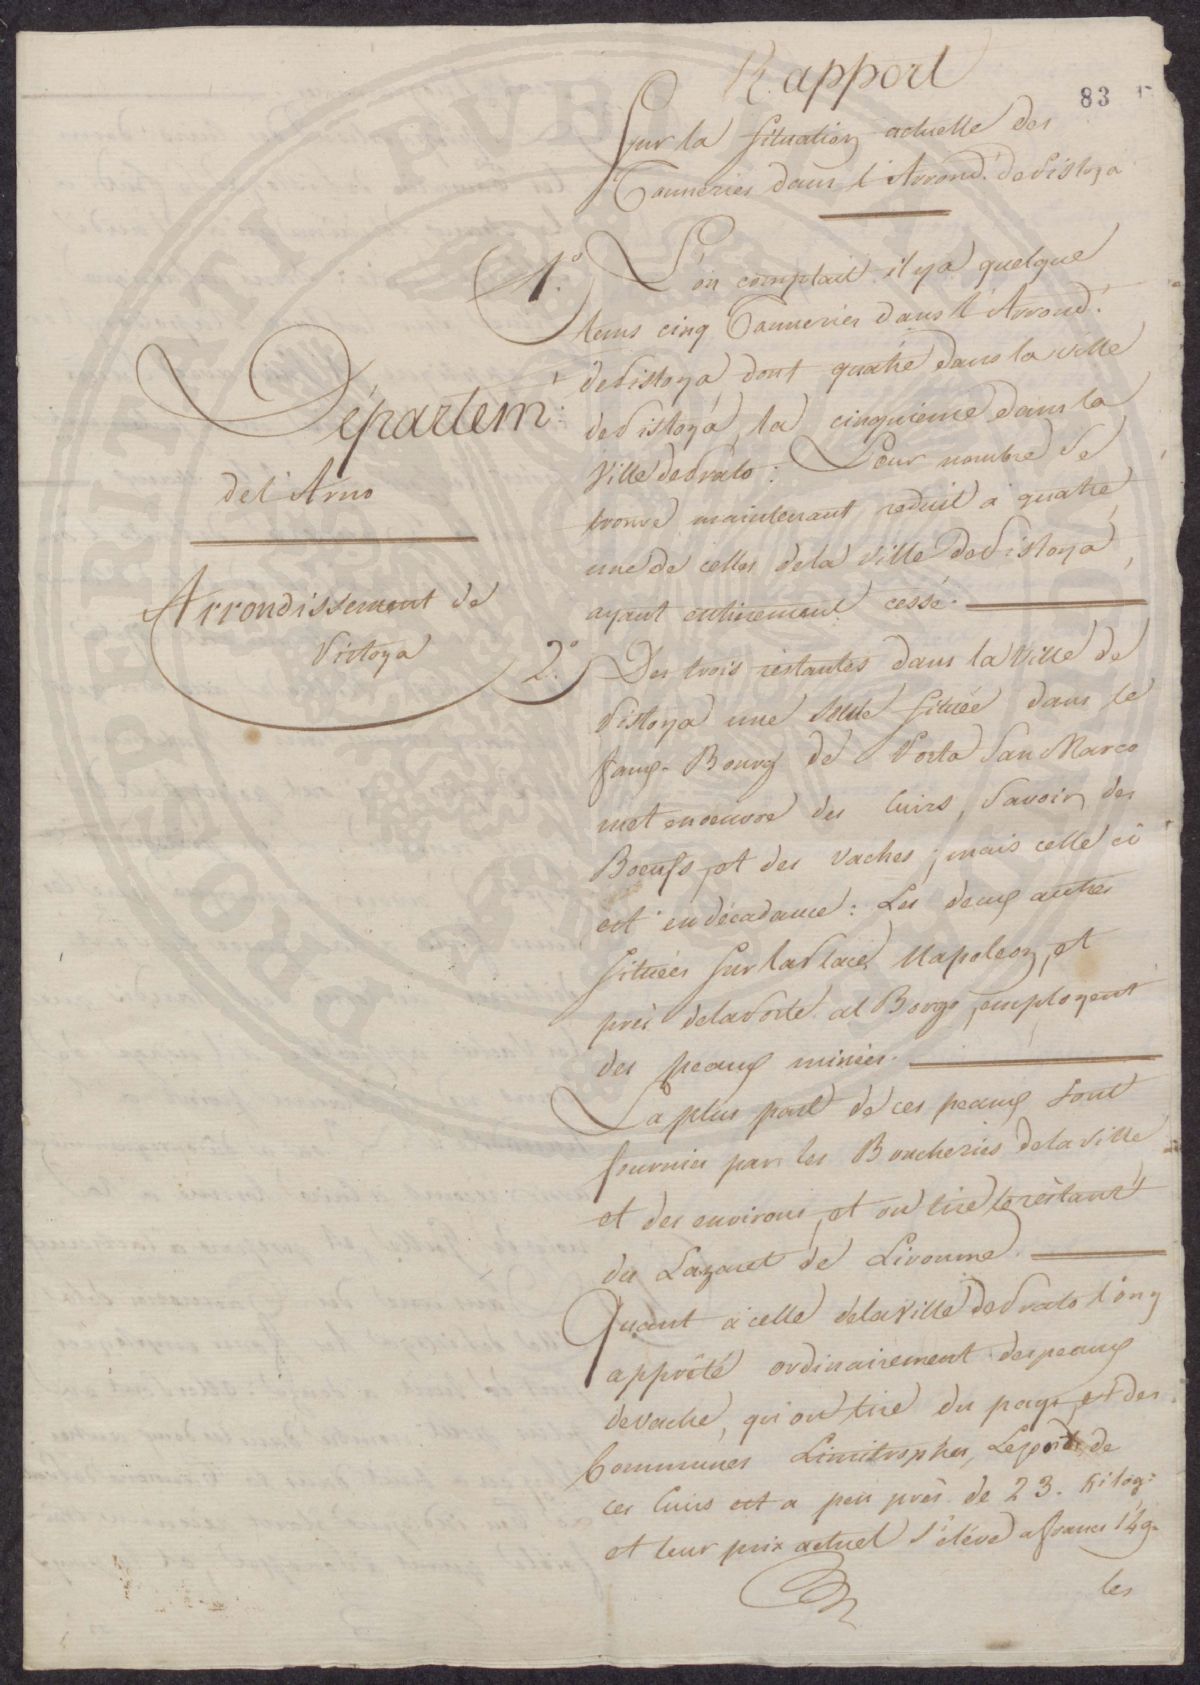 Rapport
83
Sur la situation actuelle des
Tanneries dans l'Arrond.t de Pistoya
Départem.t
de l'Arno
Arrondissement de
Pistoya
1.° L'on comptait il y a quelque
tems cinq Tanneries dans l'Arrond.t
de Pistoya dont quatre dans la ville
de Pistoya, la cinquieme dans la
Ville de Prato: Leur nombre se
trouve maintenant reduit a quatre
une de celles de la Ville de Pistoya,
ayant entierement cessé.
2.° Des trois restantes dans la Ville de
Pistoya une seule située dans le
faux-Bourg de Porta San Marco
met en oeuvre des Cuirs, savoir des
Boeufs, et des vaches; mais celle ci
est en décadance: Les deux autres
situées sur la Place Napoleon, et
près de la Porte al Borgo, employent
des peaux minces.
La plus part de ces peaux sont
fournies par les Boucheries de la Ville
et des environs, et on tire le restant
du Lazaret de Livourne.
Quant à celle de la Ville de Prato l'on y
apprête ordinairement des peaux
de vache, qu'on tire du pays, et des
Communes Limitrophes, Le poids de
ces Cuirs est a peu près de 23. Kilog:
et leur prix actuel s'éleve a francs 149.
les